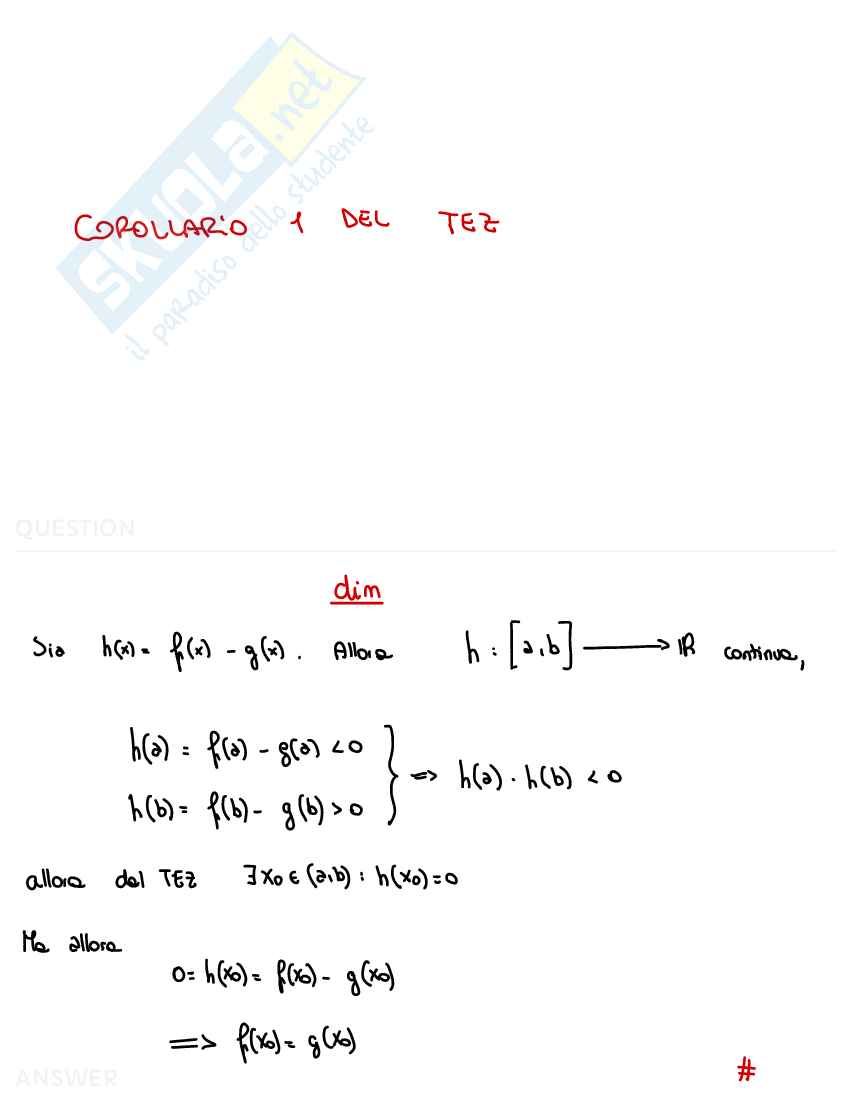 SKUOLA.net
il paradiso dello studente
COROLLARIO 1 DEL TEZ
QUESTION
dim
Sia h(x) = f(x) - g(x). Allora h : [a,b] ⟶ ℝ continua,
h(a) = f(a) - g(a) < 0
h(b) = f(b) - g(b) > 0 } => h(a) · h(b) < 0
allora dal TEZ ∃ x₀ ∈ (a,b) : h(x₀) = 0
Ma allora
0 = h(x₀) = f(x₀) - g(x₀)
=> f(x₀) = g(x₀)
#
ANSWER